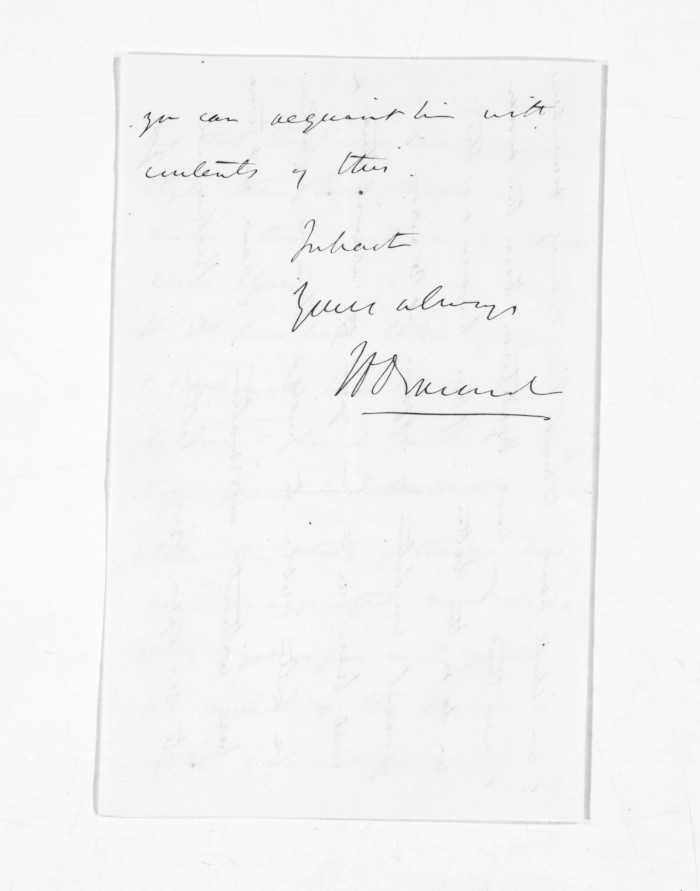 you can acquaint him with
contents of this.
In haste
Yours always